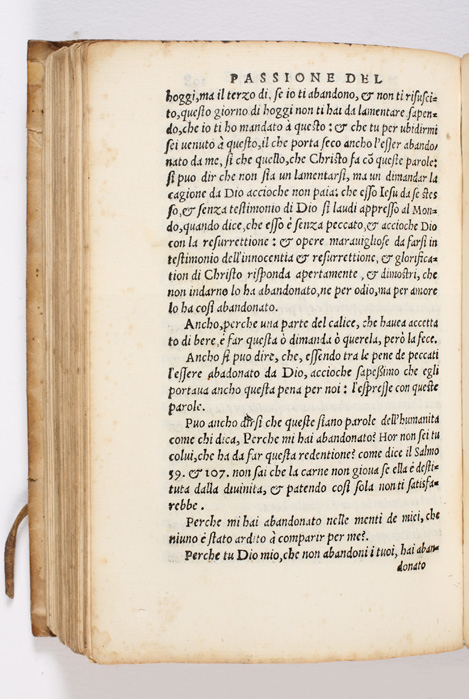 PASSIONE DEL
hoggi,ma il terzo di. se io ti abandono, & non ti risusci-
to,questo giorno di hoggi non ti hai da lamentare sapen-
do,che io ti ho mandato à questo : & che tu per ubidirmi
sei venuto à questo,il che porta seco ancho l'esser abando-
nato da me, sì che quello,che Christo fa cō queste parole:
si puo dir che non sia un lamentarsi, ma un dimandar la
cagione da Dio accioche non paia: che esso Iesu da se stes
so,& senza testimonio di Dio si laudi appresso al Mon-
do,quando dice,che esso è senza peccato,& accioche Dio
con la resurrettione : & opere maravigliose da farsi in
testimonio dell'innocentia & resurrettione, & glorifica-
tion di Christo risponda apertamente, & dimostri, che
non indarno lo ha abandonato,ne per odio,ma per amore
lo ha così abandonato.
Ancho,perche una parte del calice, che havea accetta
to di bere, è far questa ò dimanda ò querela, però la fece.
Ancho si puo dire, che, essendo tra le pene de peccati
l'essere abadonato da Dio, accioche sapessimo che egli
portava ancho questa pena per noi : l'espresse con queste
parole.
Puo ancho dirsi che queste siano parole dell'humanita
come chi dica, Perche mi hai abandonato? Hor non sei tu
colui,che ha da far questa redentione? come dice il Salmo
59. & 107. non sai che la carne non giova se ella è desti-
tuta dalla divinita, & patendo così sola non ti satisfa-
rebbe .
Perche mi hai abandonato nelle menti de miei, che
niuno è stato ardito à comparir per me?.
Perche tu Dio mio,che non abandoni i tuoi, hai aban-
donato